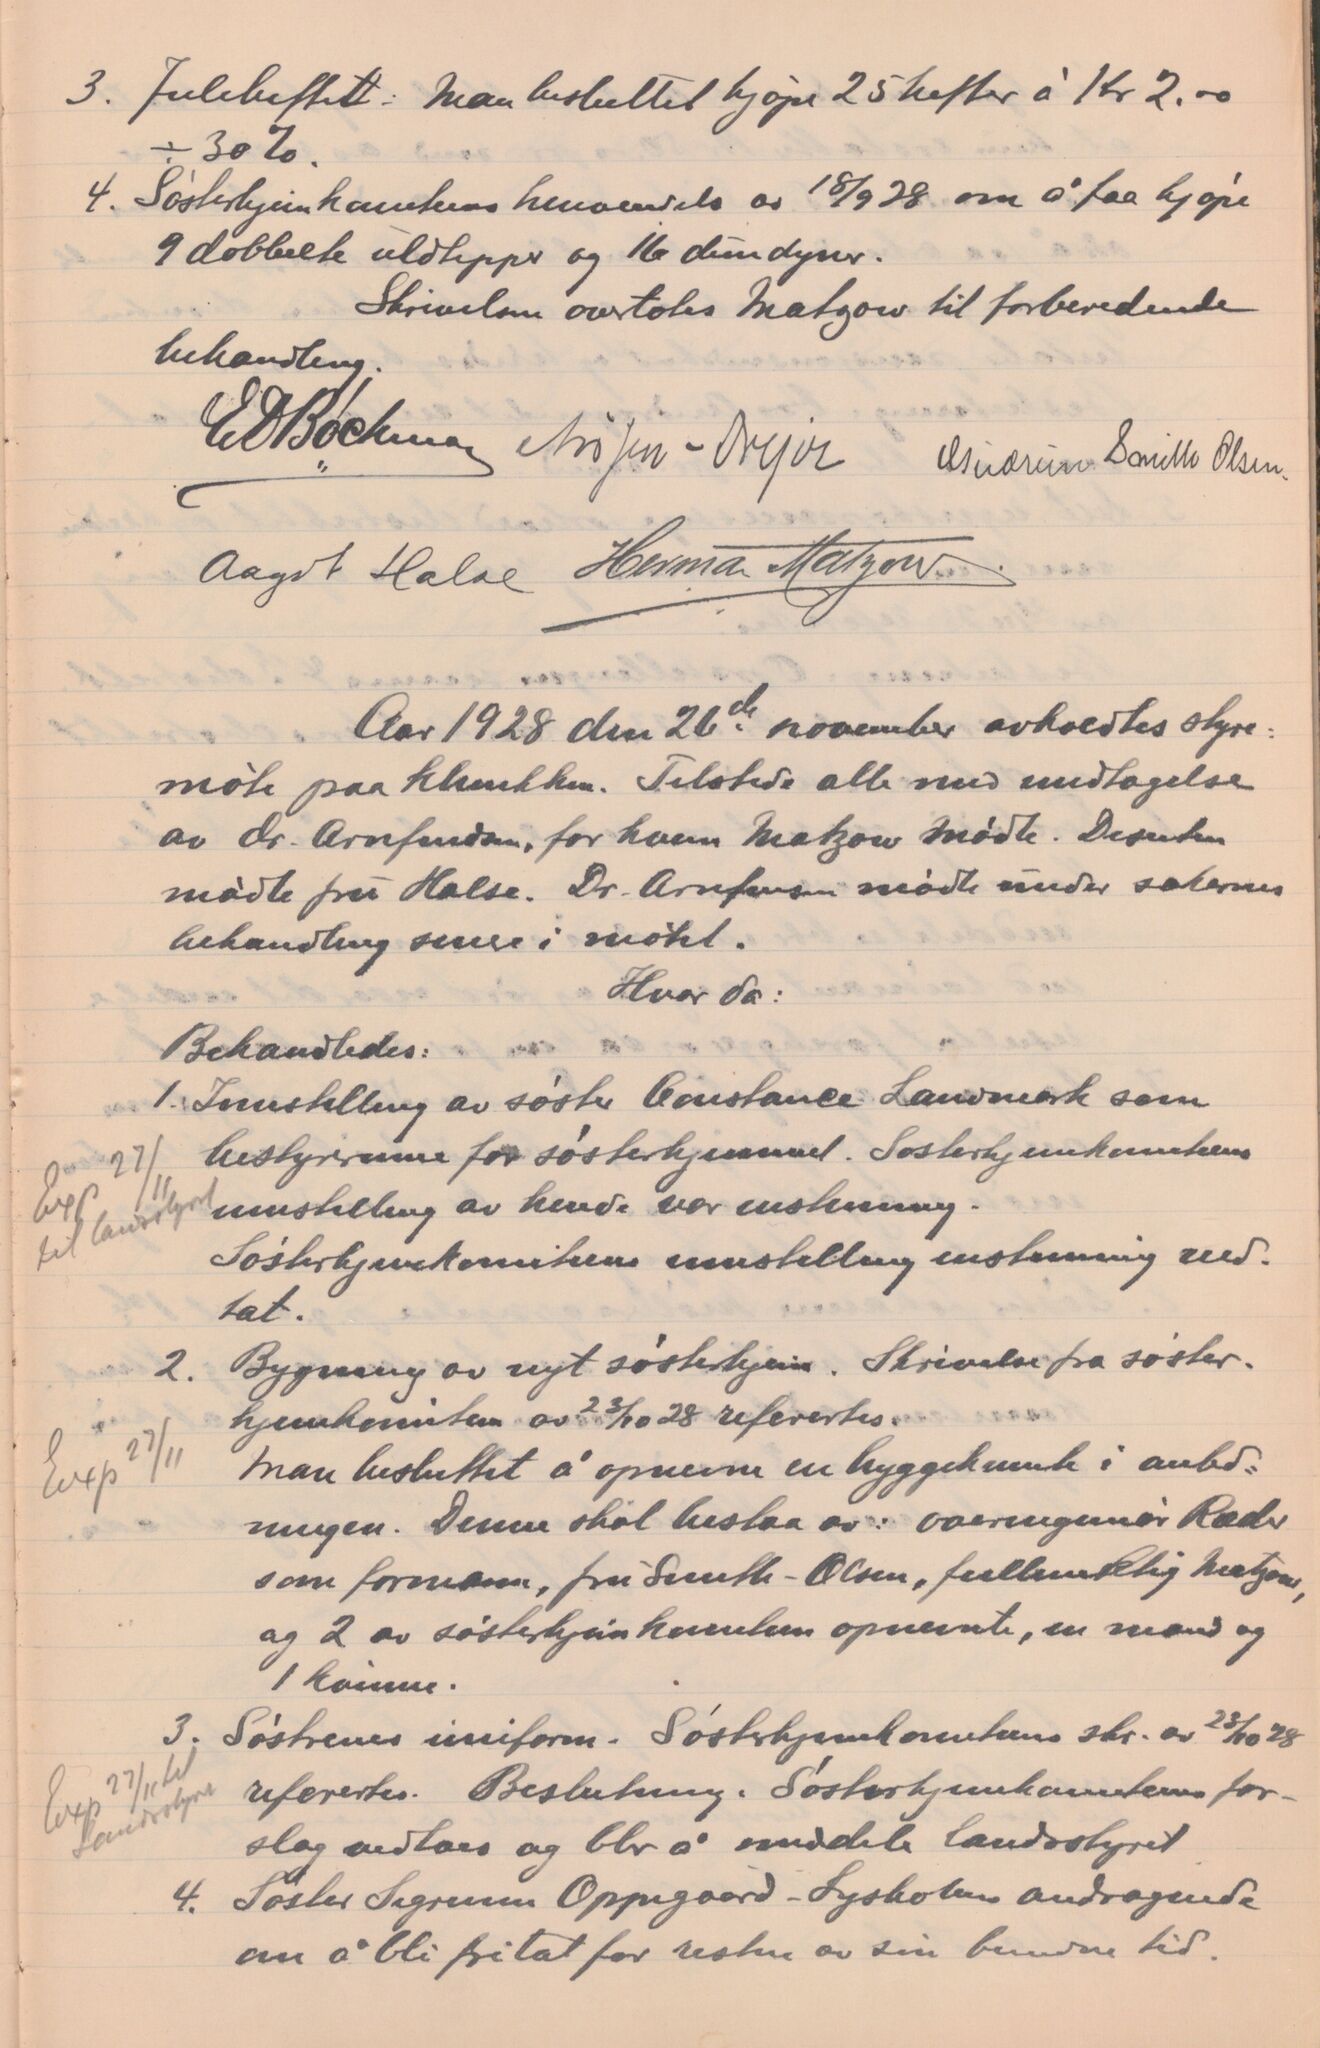 3. Juleheftet: Man besluttet kjøpe 25 hefter à Kr 2.00
÷ 30%.
4. Søsterhjemkomiteens henvendels av 18/9 28 om å faa kjøpe
9 dobbelte uldtepper og 16 dundyner.
Skrivelsen overtokes Matzow til forberedende
behandling.
E D Bóckman
Dreyer
Smith Olsen.
Aagot Halse Herman Matzow.
Aar 1928 den 26de november avholdtes styre=
møte paa klinikken. Tilstede alle med undtagelse
av dr. Arnfindsen, for hvem Matzow mødte. Desuten
mødte frü Halse. Dr. Arnfinsen mødte ünder sakernes
behandling senere i møtet.
Hvor da:
Behandledes:
1. Innstilling av søster Constance Landmark som
bestyrerinne for søsterhjemmet. Søsterhjemkomiteens
innstilling av hende var enstemmig.
Exp 27/11
til landsstyret
Søsterhjemkomiteens innstilling enstemmig ved=
tat.
2. Bygning av nyt søsterhjem. Skrivelse fra søster=
hjemkomiteen av 23/10 28 refertes.
Exp 27/11
Man besluttet å opnevne en byggekomite i anled=
ningen. Denne skal bestaa av: overingeniør Ræder
som formann, frü Smith-Olsen, fullmektig Matzow,
og 2 av søsterhjemkomiteen opnevnte, en mand og
1 kvinne.
3. Søstrenes uniform. Søsterhjemkomiteens skr. av 23/10 28
refertes. Beslutning. Søsterhjemkomiteens for=
Exp 27/11 til
Landsstyret
slag vedtaes og blir å meddele landsstyret
4. Søster Sigrunn Oppegaard-Lysholms andragende
om å bli fritat for resten av sin bundne tid.